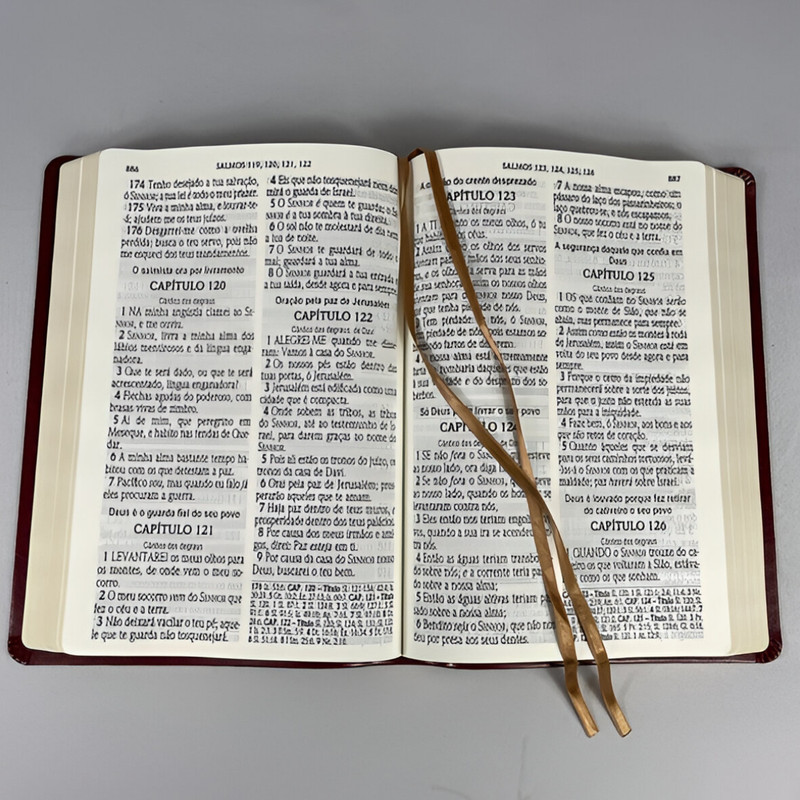 886
SALMOS 119, 120, 121, 122
174 Tenho desejado a tua salvação,
ó SENHOR; a tua lei é todo o meu prazer.
175 Viva a minha alma, e louvar-te-
á; ajudem-me os teus juízos.
176 Desgarrei-me como a ovelha
perdida; busca o teu servo, pois não
me esqueci dos teus mandamentos.
O salmista ora por livramento
CAPÍTULO 120
Cântico dos degraus
1 NA minha angústia clamei ao SE-
NHOR, e me ouviu.
2 SENHOR, livra a minha alma dos
lábios mentirosos e da língua enga-
nadora.
3 Que te será dado, ou que te será
acrescentado, língua enganadora?
4 Flechas agudas do poderoso, com
brasas vivas de zimbro.
5 Ai de mim, que peregrino em
Meseque, e habito nas tendas de Que-
dar.
6 A minha alma bastante tempo ha-
bitou com os que detestam a paz.
7 Pacífico sou, mas quando eu falo já
eles procuram a guerra.
Deus é o guarda fiel do seu povo
CAPÍTULO 121
Cântico dos degraus
1 LEVANTAREI os meus olhos para
os montes, de onde vem o meu so-
corro.
2 O meu socorro vem do SENHOR que
fez o céu e a terra.
3 Não deixará vacilar o teu pé; aque-
le que te guarda não tosquenejará.
4 Eis que não tosquenejará nem dor-
mirá o guarda de Israel.
5 O SENHOR é quem te guarda; o SE-
NHOR é a tua sombra à tua direita.
6 O sol não te molestará de dia nem
a lua de noite.
7 O SENHOR te guardará de todo o
mal; guardará a tua alma.
8 O SENHOR guardará a tua entrada e
a tua saída, desde agora e para sempre.
Oração pela paz de Jerusalém
CAPÍTULO 122
Cântico dos degraus, de Davi
1 ALEGREI-ME quando me disse-
ram: Vamos à casa do SENHOR.
2 Os nossos pés estão dentro das
tuas portas, ó Jerusalém.
3 Jerusalém está edificada como uma
cidade que é compacta.
4 Onde sobem as tribos, as tribos
do SENHOR, até ao testemunho de Is-
rael, para darem graças ao nome do
SENHOR.
5 Pois ali estão os tronos do juízo, os
tronos da casa de Davi.
6 Orai pela paz de Jerusalém; pros-
perarão aqueles que te amam.
7 Haja paz dentro de teus muros, e
prosperidade dentro dos teus palácios.
8 Por causa dos meus irmãos e ami-
gos, direi: Paz esteja em ti.
9 Por causa da casa do SENHOR nosso
Deus, buscarei o teu bem.
SALMOS 123, 124, 125, 126
887
A oração do crente desprezado
CAPÍTULO 123
Cântico dos degraus
1 A TI os meus olhos, ó tu
que habitas nos céus.
2 Assim como os olhos dos servos
para as mãos dos seus senho-
e os olhos da serva para as mãos
de sua senhora, assim os nossos olhos
atentam para o SENHOR nosso Deus,
que tenha piedade de nós.
3 Tem piedade de nós, ó SENHOR,
piedade de nós, pois estamos so-
fartos de desprezo.
4 A nossa alma está extremamente
farta da zombaria
e do desprezo dos so-
berbos.
Só Deus pode livrar o seu povo
CAPÍTULO 124
Cântico dos degraus, de Davi
1 SE não fora o SENHOR, que esteve
ao nosso lado, ora diga Israel;
2 Se não fora o SENHOR, que esteve
ao nosso lado, quando os homens se
levantaram contra nós,
3 Eles então nos teriam engolido
vivos, quando a sua ira se acendeu
contra nós.
4 Então as águas teriam transbor-
dado sobre nós, e a corrente teria pas-
sado sobre a nossa alma;
5 Então as águas altivas teriam pas-
sado sobre a nossa alma;
6 Bendito seja o SENHOR, que não nos
deu por presa aos seus dentes.
7 A nossa alma escapou, como um
pássaro do laço dos passarinheiros; o
laço quebrou-se, e nós escapamos.
8 O nosso socorro está no nome do
SENHOR, que fez o céu e a terra.
A segurança daquele que confia em
Deus
CAPÍTULO 125
Cântico dos degraus
1 OS que confiam no SENHOR serão
como o monte de Sião, que não se
abala, mas permanece para sempre.
2 Assim como estão os montes à roda
de Jerusalém, assim o SENHOR está em
volta do seu povo desde agora e para
sempre.
3 Porque o cetro da impiedade não
permanecerá sobre a sorte dos justos,
para que o justo não estenda as suas
mãos para a iniquidade.
4 Faze bem, ó SENHOR, aos bons e aos
que são retos de coração.
5 Quanto àqueles que se desviam
para os seus caminhos tortuosos, levá-
los-á o SENHOR com os que praticam a
maldade; paz haverá sobre Israel.
Deus é louvado porque fez retirar
do cativeiro o seu povo
CAPÍTULO 126
Cântico dos degraus
1 QUANDO o SENHOR trouxe do ca-
tiveiro os que voltaram a Sião, estáva-
mos como os que sonham.